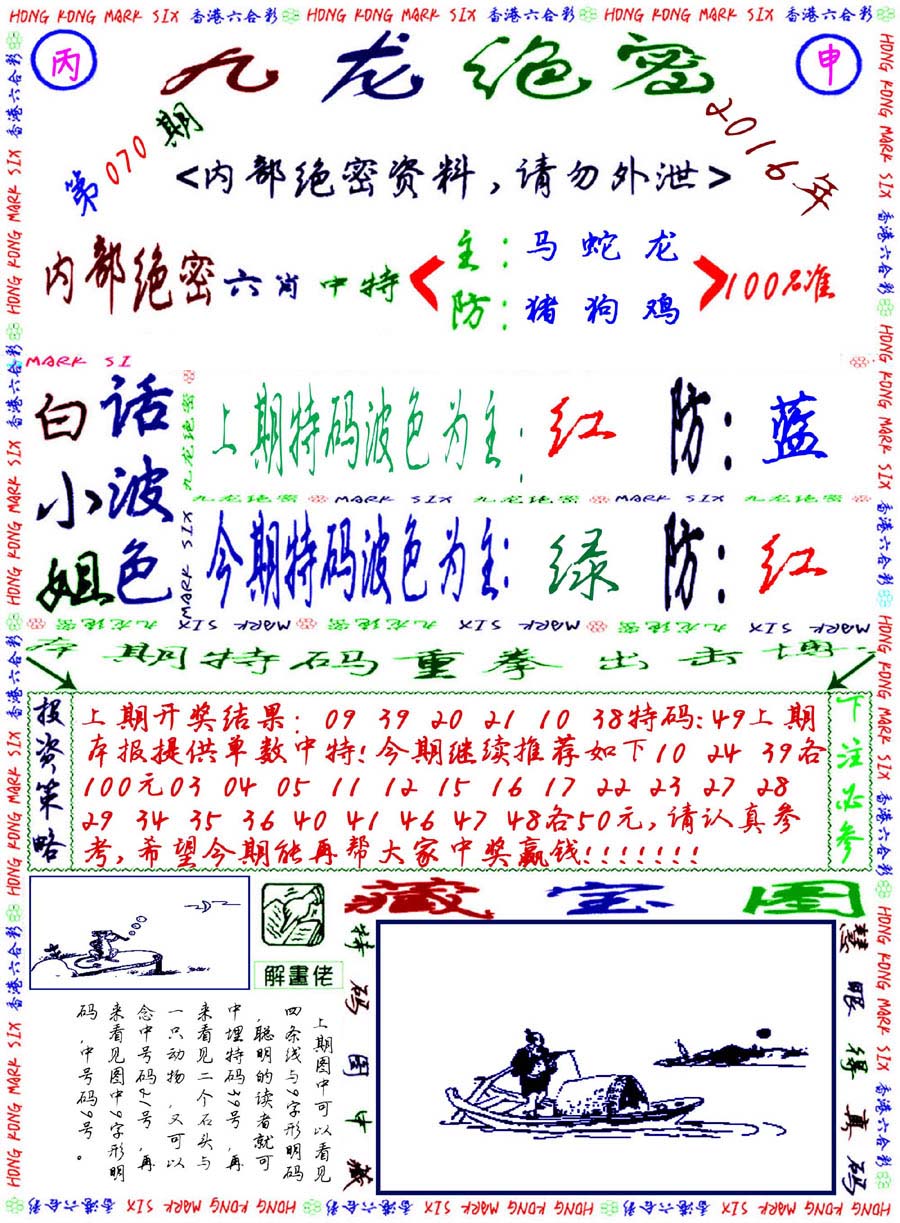 HONG KONG MARK SIX 香港六合彩 HONG KONG MARK SIX 香港六合彩 HONG KONG MARK SIX 香港六合彩
丙 九龙绝密 申
第070期 2016年
<内部绝密资料,请勿外泄>
内部绝密六肖中特 主:马蛇龙 100%准
防:猪狗鸡
MARK SI
白话
小波
姐色
上期特码波色为主:红 防:蓝
九龙绝密 MARK SIX 九龙绝密 MARK SIX 九龙绝密
今期特码波色为主:绿 防:红
MARK SIX 九龙绝密 MARK SIX 九龙绝密 MARK SIX 九龙绝密
本期特码重拳出击博
投资策略
上期开奖结果: 09 39 20 21 10 38特码:49上期
本报提供单数中特!今期继续推荐如下10 24 39各
100元03 04 05 11 12 15 16 17 22 23 27 28
29 34 35 36 40 41 46 47 48各50元,请认真参
考,希望今期能再帮大家中奖赢钱!!!!!!!
下注必参
藏宝图
解畫佬
特码图中藏
慧眼得真码
上期图中可以看见
四条线与9字形明码
,聪明的读者就可
中埋特码39号,再
来看见二个石头与
一只动物,又可以
念中号码21号,再
来看见图中9字形明
码,中号码9号。
HONG KONG MARK SIX 香港六合彩 HONG KONG MARK SIX 香港六合彩 HONG KONG MARK SIX 香港六合彩